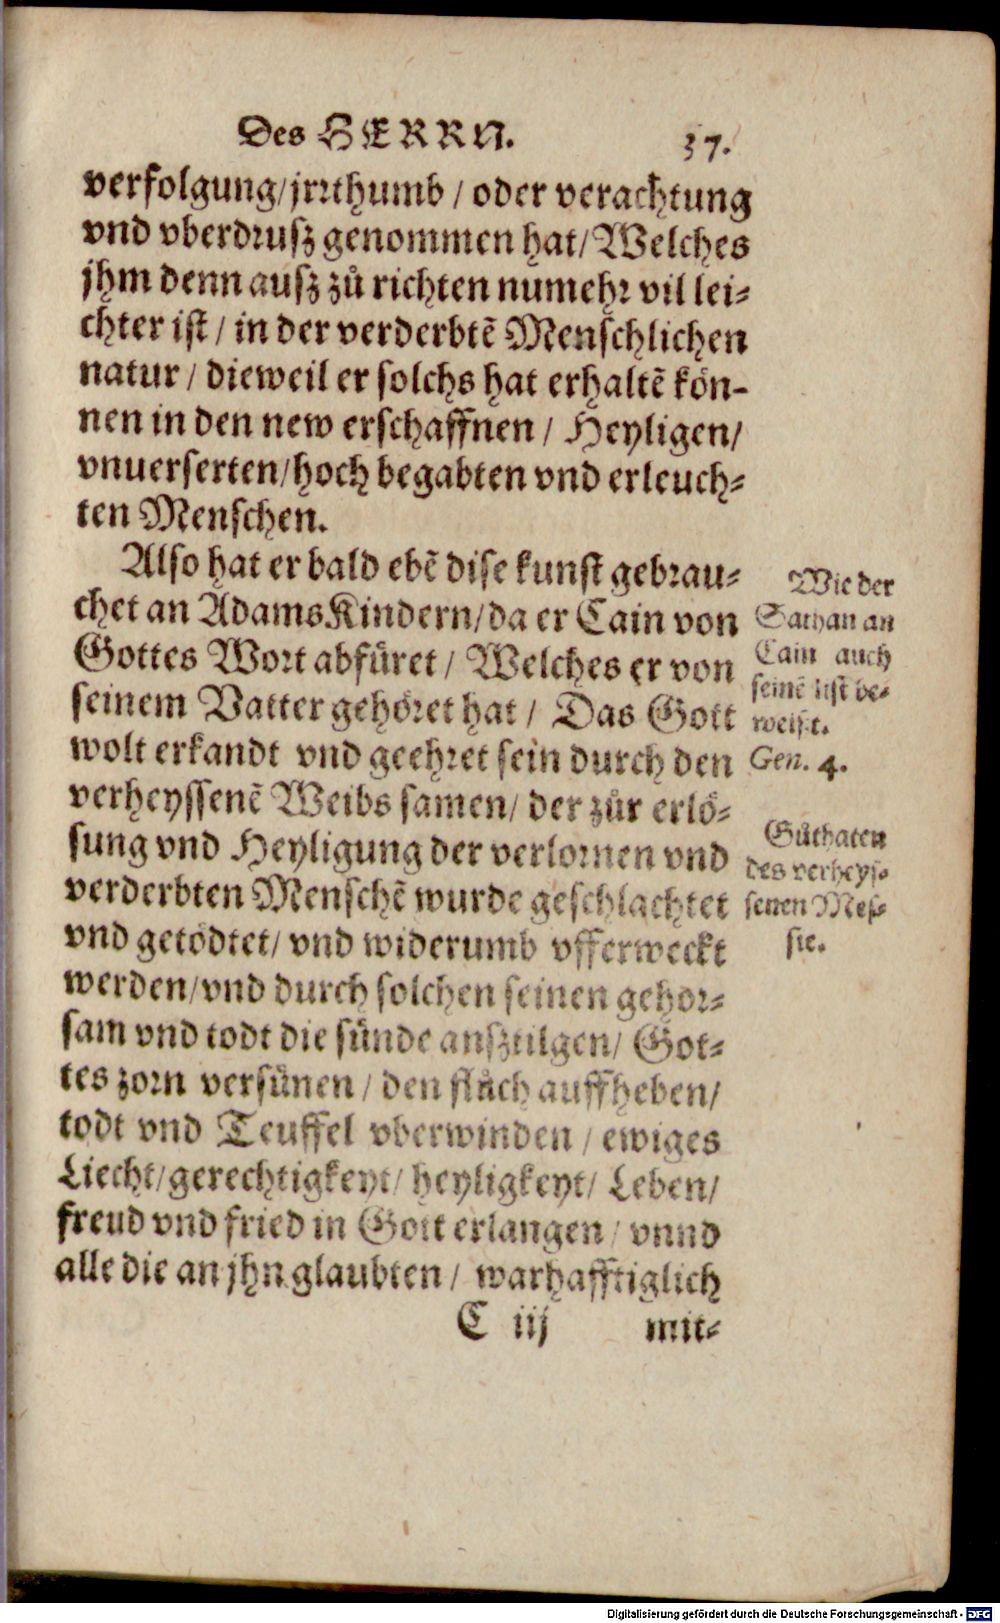 Des HERRN. 37.
verfolgung/jrrthumb / oder verachtung
vnd vberdrusz genommen hat/Welches
jhm denn ausz zů richten numehr vil lei-
chter ist / in der verderbtē Menschlichen
natur / dieweil er solchs hat erhaltē kön-
nen in den new erschaffnen / Heyligen/
vnuerserten/hoch begabten vnd erleuch-
ten Menschen.
Also hat er bald ebē dise kunst gebrau-
chet an Adams Kindern/da er Cain von
Gottes Wort abfüret / Welches er von
seinem Vatter gehöret hat / Das Gott
wolt erkandt vnd geehret sein durch den
verheyssenē Weibs samen/ der zůr erlö-
sung vnd Heyligung der verlornen vnd
verderbten Menschē wurde geschlachtet
vnd getödtet/ vnd widerumb vfferweckt
werden/vnd durch solchen seinen gehor-
sam vnd todt die sünde ausztilgen/ Got-
tes zorn versünen / den flůch auffheben/
todt vnd Teuffel vberwinden / ewiges
Liecht/gerechtigkeyt/ heyligkeyt/ Leben/
freud vnd fried in Gott erlangen / vnnd
alle die an jhn glaubten / warhafftiglich
C iij mit-
Wie der
Sathan an
Cain auch
seinē list be-
weist.
Gen. 4.
Gůthaten
des verheys-
senen Mes-
sie.
Digitalisierung gefördert durch die Deutsche Forschungsgemeinschaft - DFG